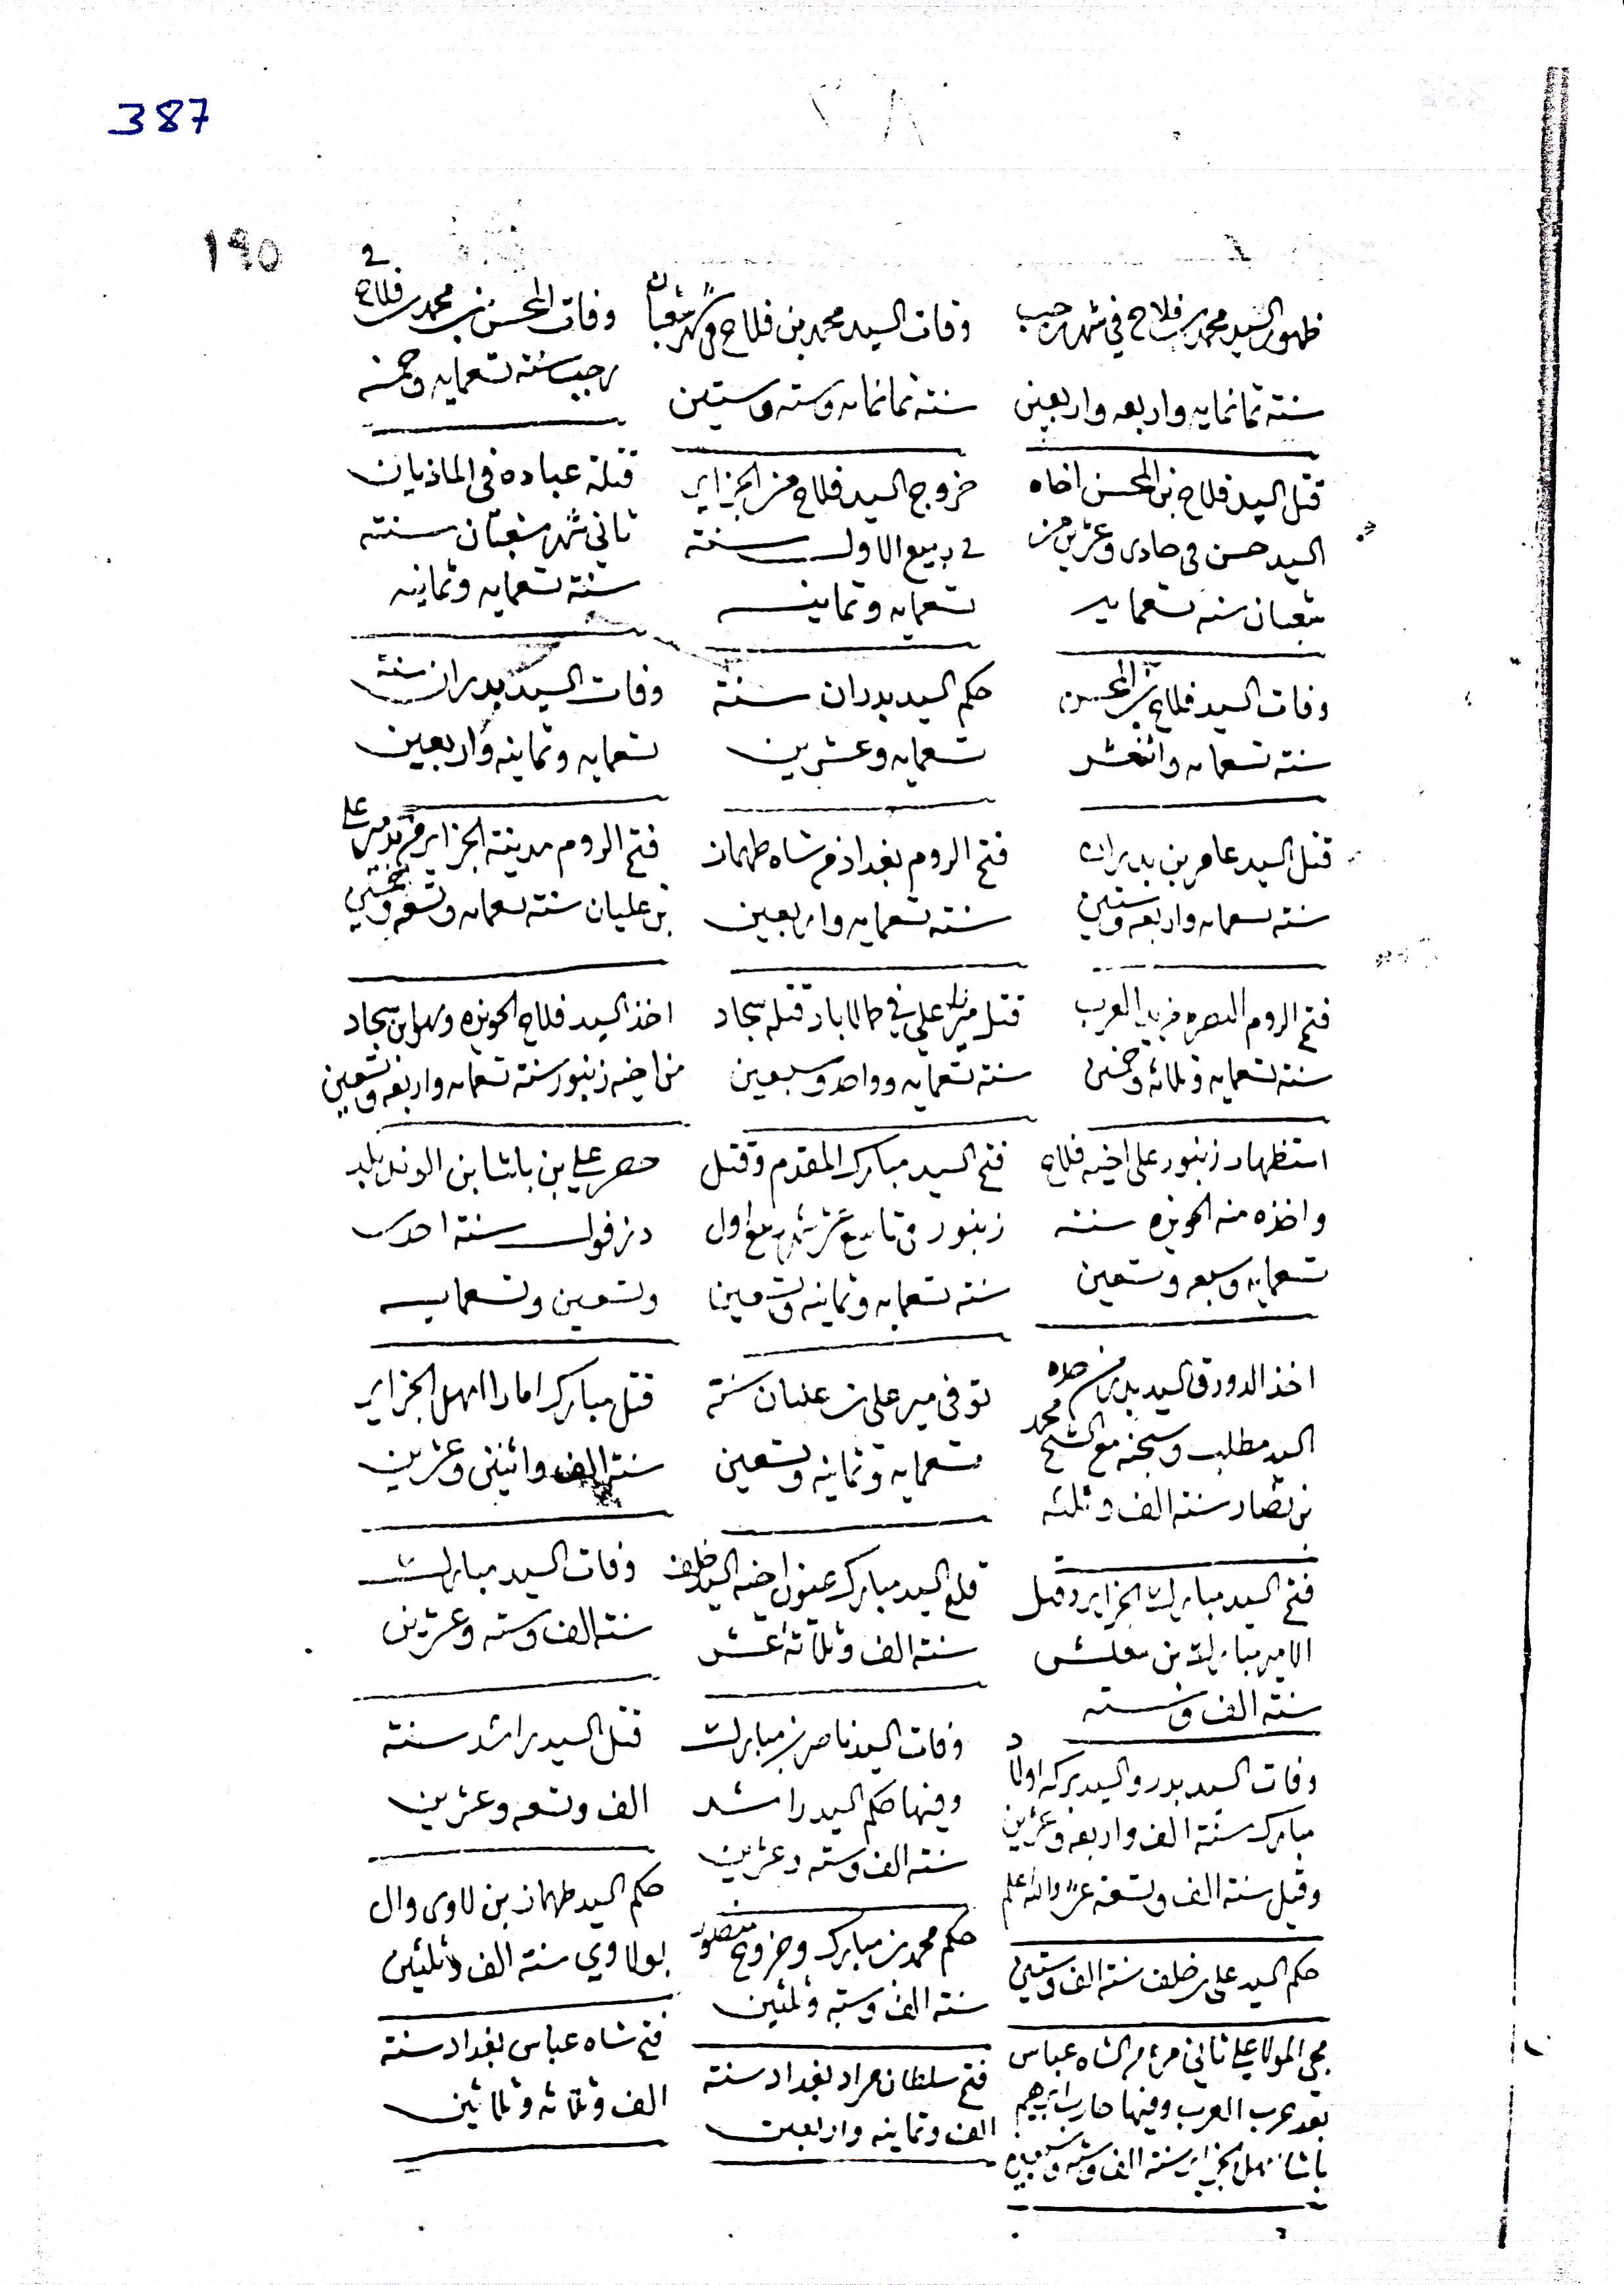 387
١٩٥
ظهور السيد محمد بن فلاح في شهر رجب
سنته ثمانمايه واربعه واربعين
وفات السيد محمد بن فلاح في شهر شعبان
سنته ثمانمايه وسته وستين
وفات المحسن بن محمد بن فلاح في
رجب سنته تسعمايه وخمسه
قتل السيد فلاح بن المحسن اخاه
السيد حسن في حادى وعشرين من
شعبان سنه تسعمايه
خروج السيد فلاح من الجزاير
في ربيع الاول سنته
تسعمايه وثمانيه
قتلة عباده في الماذيان
ثاني شهر شعبان سنته
سنته تسعمايه وثمانيه
وفات السيد فلاح بن المحسن
سنته تسعمايه واثنعشر
حكم السيد بدران سنته
تسعمايه وعشرين
وفات السيد بدران سنته
تسعمايه وثمانيه واربعين
قتل السيد عامر بن بدران
سنته تسعمايه واربعه وستين
فتح الروم بغداد من شاه طهماز
سنته تسعمايه واربعين
فتح الروم مدينة الجزاير من يد مير علي
بن عليان سنته تسعمايه وتسعه وخمسين
فتح الروم البصره من يد العرب
سنته تسعمايه وثلاثه وخمسين
قتل مير علي في حالاباد قتله سجاد
سنته تسعمايه وواحد وسبعين
اخذ السيد فلاح الحويزه وهو ابن سجاد
من اخيه زنبور سنته تسعمايه واربعه وتسعين
استظهار زنبور على اخيه فلاح
واخذه منه الحويزه سنته
تسعمايه وسبعه وتسعين
فتح السيد مبارك المقدم وقتل
زنبور في تاسع عشر شهر ربيع اول
سنته تسعمايه وثمانيه وتسعين
حصر علي بن باشا بن الوند بلد
دزفول سنته احدى
وتسعين وتسعمايه
اخذ الدورق السيد بدر من
السيد مطلب وسجنه مع الشيخ محمد
بن نصار سنته الف وثلثه
توفى مير على بن عليان سنته
تسعمايه وثمانيه وتسعين
قتل مبارك امارا اهل الجزاير
سنته الف واثنين وعشرين
فتح السيد مبارك الجزاير وقتل
الامير مبارك بن مغلش
سنته الف وسته
قلع السيد مبارك عيون اخيه السيد خلف
سنته الف وثلاثة عشر
وفات السيد مبارك
سنته الف وسته وعشرين
وفات السيد بدر والسيد بركه اولاد
مبارك سنته الف واربعه وعشرين
وقيل سنته الف وتسعة عشر والله اعلم
وفات السيد ناصر بن مبارك
وفيها حكم السيد راشد
سنته الف وسته وعشرين
قتل السيد راشد سنته
الف وتسعه وعشرين
حكم السيد على بن خلف سنته الف وستين
حكم محمد بن مبارك وخروج منصور
سنته الف وسته وثلثين
حكم السيد طهماز بن لاوى وال
بولاوي سنته الف وثلثين
مجي المولا علي ثاني من الشاه عباس
بعد حرب العرب وفيها حارب ابرهيم
باشا اهل الجزاير سنته الف وسته وسبعين
فتح سلطان مراد بغداد سنته
الف وثمانيه واربعين
فتح شاه عباس بغداد سنته
الف وثلاثه وثلاثين